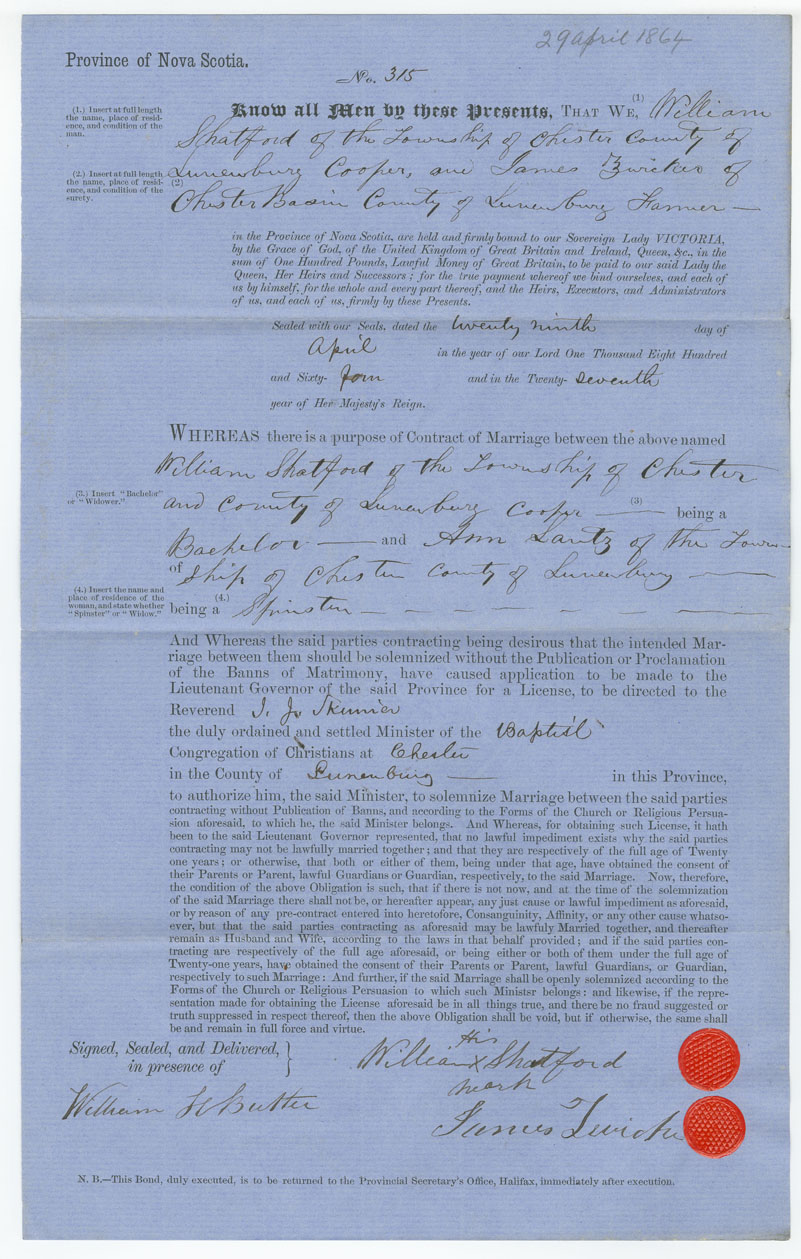 29 April 1864
Province of Nova Scotia.
No. 315
(1.) Insert at full length
the name, place of resid-
ence, and condition of the
man.
Know all Men by these Presents, THAT WE, (1) William
Shatford of the Township of Chester County of
(2.) Insert at full length
the name, place of resid-
ence, and condition of the
surety.
Lunenburg Cooper, and James Zwicker of
(2) Chester Basin County of Lunenburg Farmer —
in the Province of Nova Scotia, are held and firmly bound to our Sovereign Lady VICTORIA,
by the Grace of God, of the United Kingdom of Great Britain and Ireland, Queen, &c., in the
sum of One Hundred Pounds, Lawful Money of Great Britain, to be paid to our said Lady the
Queen, Her Heirs and Successors; for the true payment whereof we bind ourselves, and each of
us by himself, for the whole and every part thereof, and the Heirs, Executors, and Administrators
of us, and each of us, firmly by these Presents.
Sealed with our Seals, dated the twenty ninth day of
April in the year of our Lord One Thousand Eight Hundred
and Sixty- four and in the Twenty- seventh
year of Her Majesty's Reign.
WHEREAS there is a purpose of Contract of Marriage between the above named
William Shatford of the Township of Chester
(3.) Insert "Bachelor"
or "Widower."
and County of Lunenburg Cooper — (3) being a
Bachelor — and Ann Lantz of the Town-
of ship of Chester County of Lunenburg —
(4.) Insert the name and
place of residence of the
woman, and state whether
"Spinster" or "Widow."
being a (4.) Spinster — — — — — —
And Whereas the said parties contracting being desirous that the intended Mar-
riage between them should be solemnized without the Publication or Proclamation
of the Banns of Matrimony, have caused application to be made to the
Lieutenant Governor of the said Province for a License, to be directed to the
Reverend I. J. Skinner
the duly ordained and settled Minister of the Baptist
Congregation of Christians at Chester
in the County of Lunenburg — in this Province,
to authorize him, the said Minister, to solemnize Marriage between the said parties
contracting without Publication of Banns, and according to the Forms of the Church or Religious Persua-
sion aforesaid, to which he, the said Minister belongs. And Whereas, for obtaining such License, it hath
been to the said Lieutenant Governor represented, that no lawful impediment exists why the said parties
contracting may not be lawfully married together; and that they are respectively of the full age of Twenty
one years; or otherwise, that both or either of them, being under that age, have obtained the consent of
their Parents or Parent, lawful Guardians or Guardian, respectively, to the said Marriage. Now, therefore,
the condition of the above Obligation is such, that if there is not now, and at the time of the solemnization
of the said Marriage there shall not be, or hereafter appear, any just cause or lawful impediment as aforesaid,
or by reason of any pre-contract entered into heretofore, Consanguinity, Affinity, or any other cause whatso-
ever, but that the said parties contracting as aforesaid may be lawfuly Married together, and thereafter
remain as Husband and Wife, according to the laws in that behalf provided; and if the said parties con-
tracting are respectively of the full age aforesaid, or being either or both of them under the full age of
Twenty-one years, have obtained the consent of their Parents or Parent, lawful Guardians, or Guardian,
respectively to such Marriage: And further, if the said Marriage shall be openly solemnized according to the
Forms of the Church or Religious Persuasion to which such Ministsr belongs: and likewise, if the repre-
sentation made for obtaining the License aforesaid be in all things true, and there be no fraud suggested or
truth suppressed in respect thereof, then the above Obligation shall be void, but if otherwise, the same shall
be and remain in full force and virtue.
Signed, Sealed, and Delivered,
in presence of
His
William X Shatford
mark
William
James Zwicker
N. B.—This Bond, duly executed, is to be returned to the Provincial Secretary's Office, Halifax, immediately after execution.